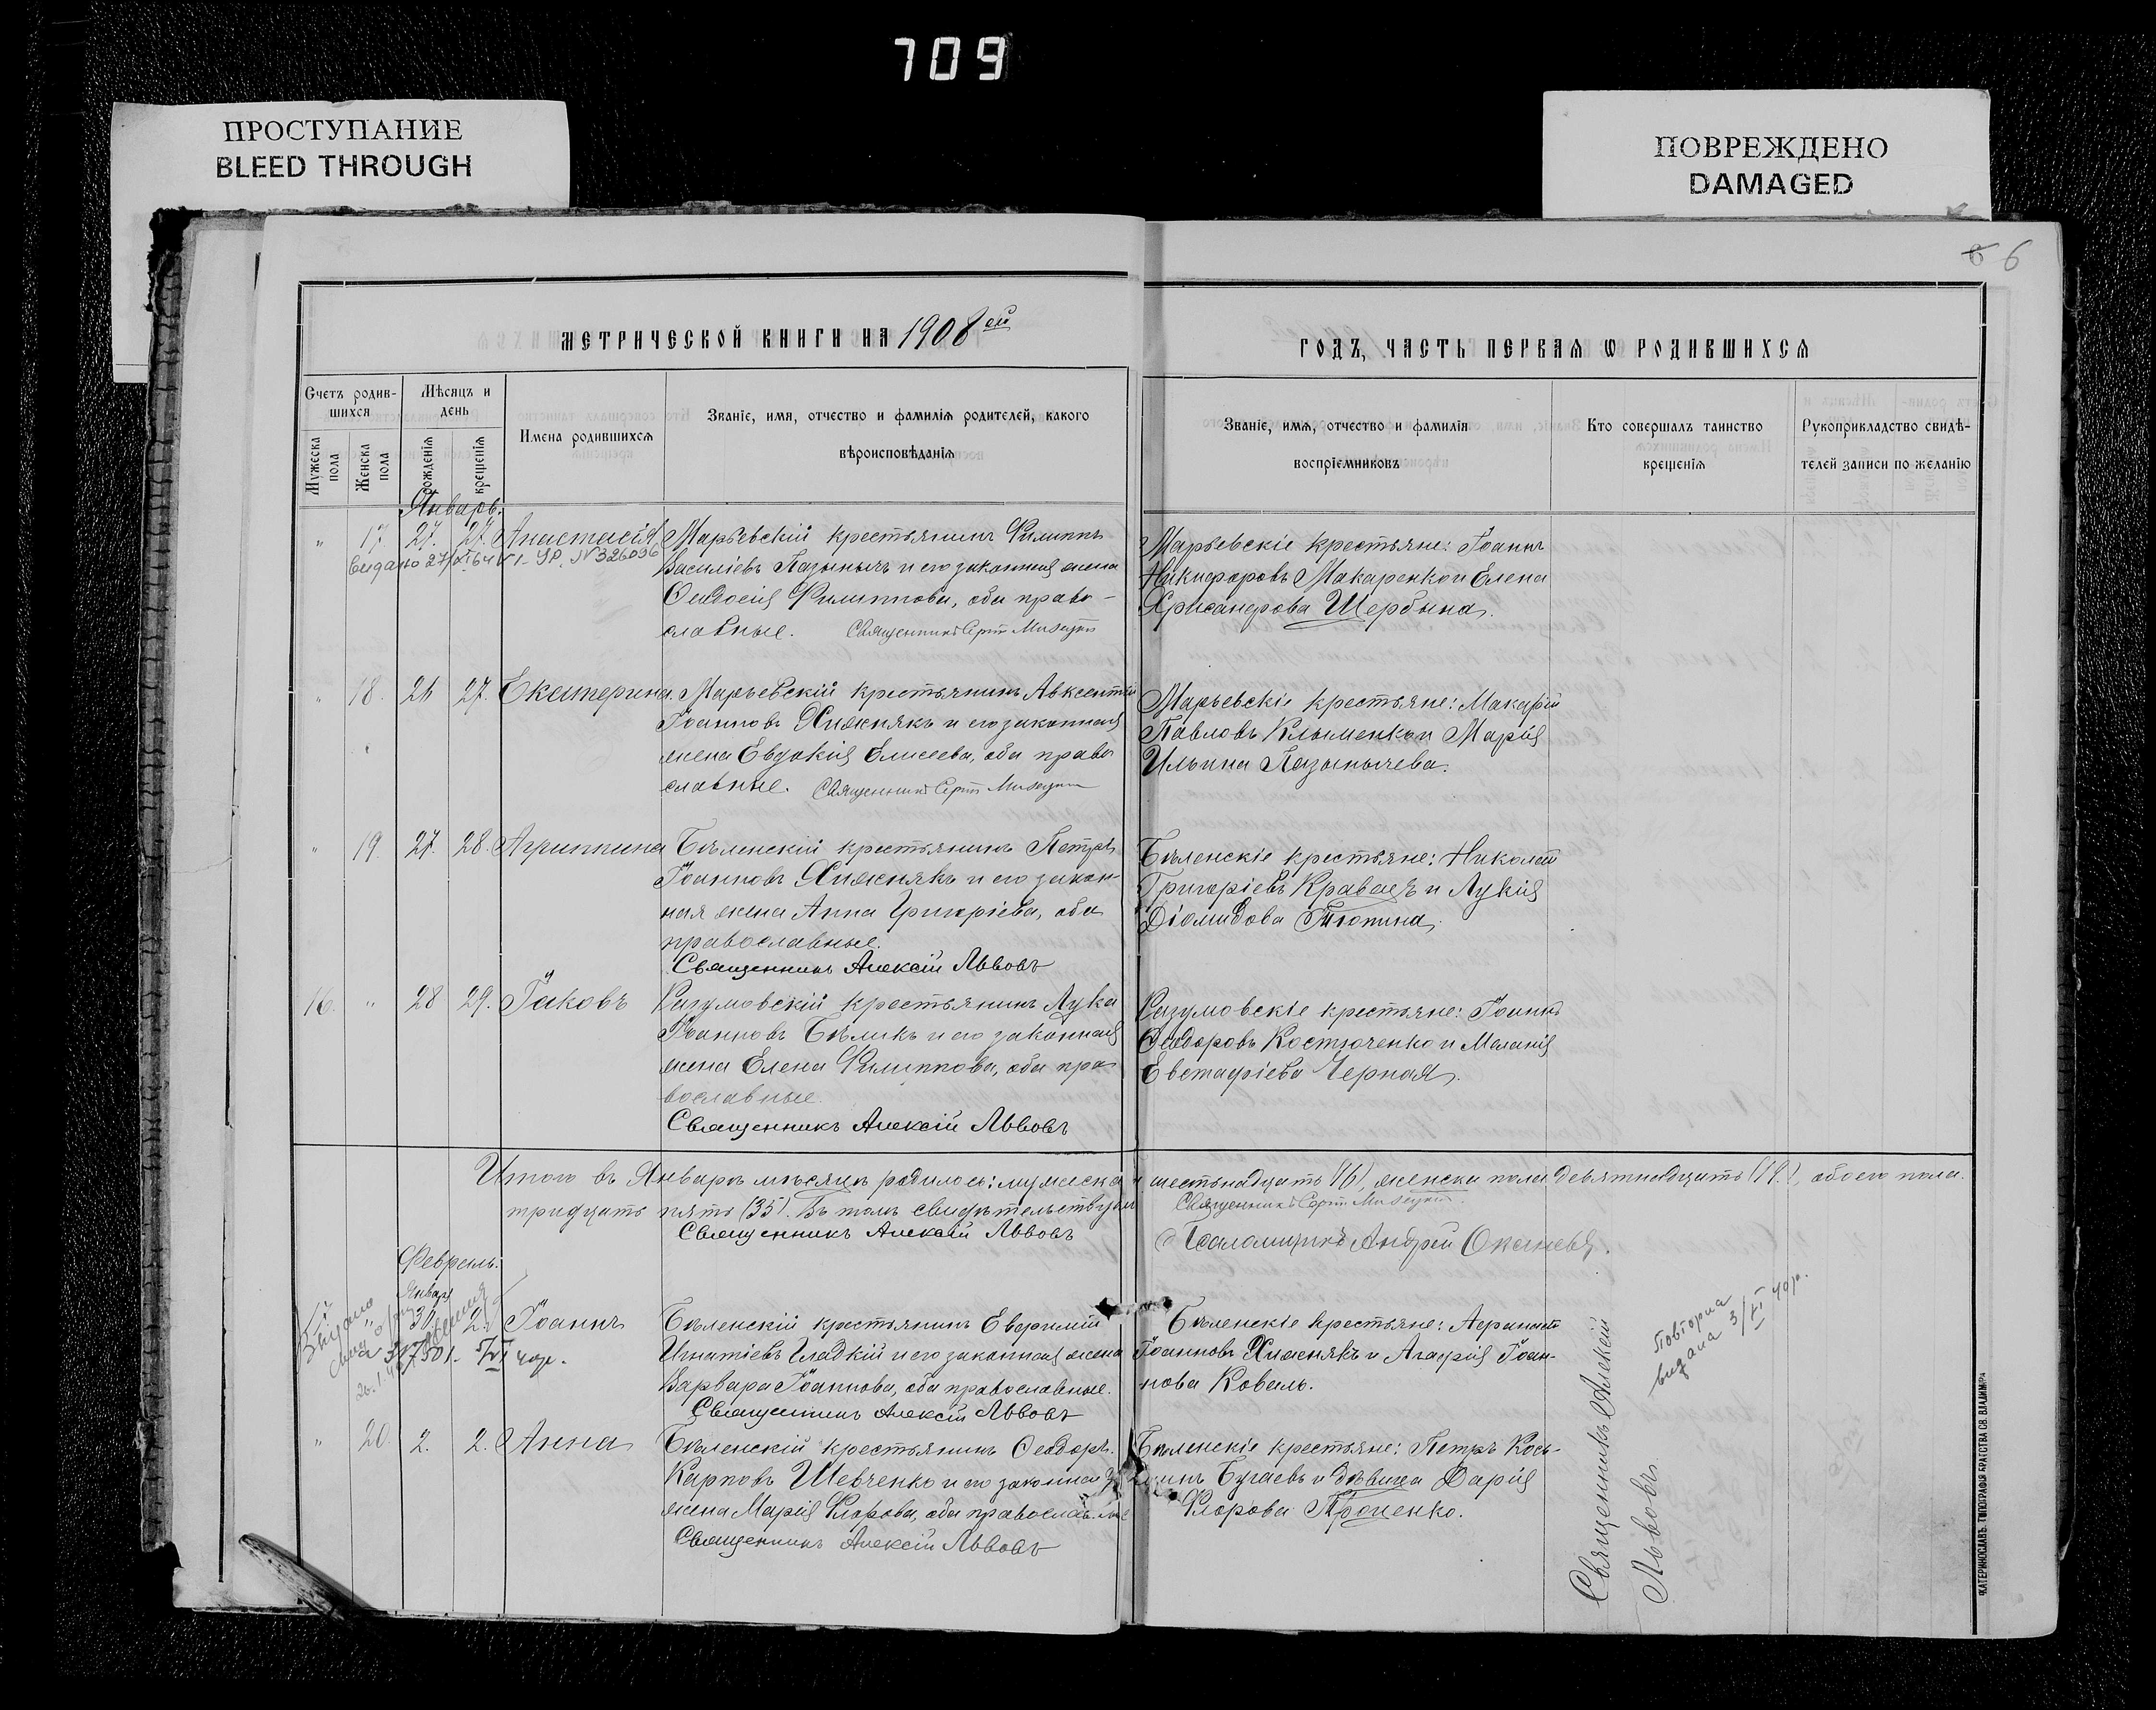 709
ПРОСТУПАНИЕ
BLEED THROUGH
ПОВРЕЖДЕНО
DAMAGED
6 6
МЕТРИЧЕСКОЙ КНИГИ НА 1908 ой
ГОДЪ, ЧАСТЬ ПЕРВАЯ Ѡ РОДИВШИХСЯ
Счетъ родив-
шихся
Мужеска пола
Женска пола
Мѣсяцъ и
день
рожденія
крещенія
Имена родившихся
Званіе, имя, отчество и фамилія родителей, какого
вѣроисповѣданія
Званіе, имя, отчество и фамилія
воспріемниковъ
Кто совершалъ таинство
крещенія
Рукоприкладство свидѣ-
телей записи по желанію
Январь.
" 17. 27. 27. Анастасія
Марьевскій крестьянинъ Филиппъ
Василіевъ Пазынычъ и его законная жена
Филиппова, оба право-
славные. Священникъ
Марьевскіе крестьяне: Іоаннъ
Никифоровъ Макаренко и Елена
Хрисанфова Щербина.
" 18. 26 27. Екатерина.
Марьевскій крестьянинъ Авксентій
Іоанновъ Хижнякъ и его законная
жена Евдокія Елисеева, оба право
славные. Священникъ
Марьевскіе крестьяне: Макарій
Павловъ Клыменко и Марія
Ильина Пазынычева.
" 19. 27. 28. Агриппина
Бѣленскій крестьянинъ Петръ
Іоанновъ Хижнякъ и его закон-
ная жена Анна Григоріева, оба
православные.
Священникъ Алексій Львовъ
Бѣленскіе крестьяне: Николай
Григоріевъ Кравецъ и Лукія
Діомидова Тюпина.
16. " 28 29. Іаковъ
Разумовскій крестьянинъ Лука
Іоанновъ Бѣликъ и его законная
жена Елена Филиппова, оба пра
вославные.
Священникъ Алексій Львовъ
Разумовскіе крестьяне: Іоаннъ
Феодоровъ Костюченко и Меланія
Евстафіева Черная.
Итого въ Январѣ мѣсяцѣ родилось: мужеска шестьнадцать (16), женска пола девятнадцать (19), обоего пола
тридцать пять (35). Въ томъ свидѣтельствуемъ
Священникъ Алексій Львовъ
Священникъ
Псаломщикъ Андрей
Февраль.
Января
17 " 30. 2. Іоаннъ
Бѣленскій крестьянинъ Евфимій
Игнатіевъ Гладкій и его законная жена
Варвара Іоаннова, оба православные.
Священникъ Алексій Львовъ
Бѣленскіе крестьяне:
Іоанновъ Хижнякъ и Агафія Іоан-
нова Коваль.
Священникъ Алексій
Львовъ
Повторна
видана 3/XI 40р.
" 20. 2. 2. Анна
Бѣленскій крестьянинъ Феодоръ
Карповъ Шевченко и его законная
жена Марія Флорова, оба православные
Священникъ Алексій Львовъ
Бѣленскіе крестьяне: Петръ Кось-
минъ Бугаевъ и дѣвица Дарія
Флорова Проценко.
ЕКАТЕРИНОСЛАВЪ. ТИПОГРАФІЯ БРАТСТВА СВ. ВЛАДИМІРА